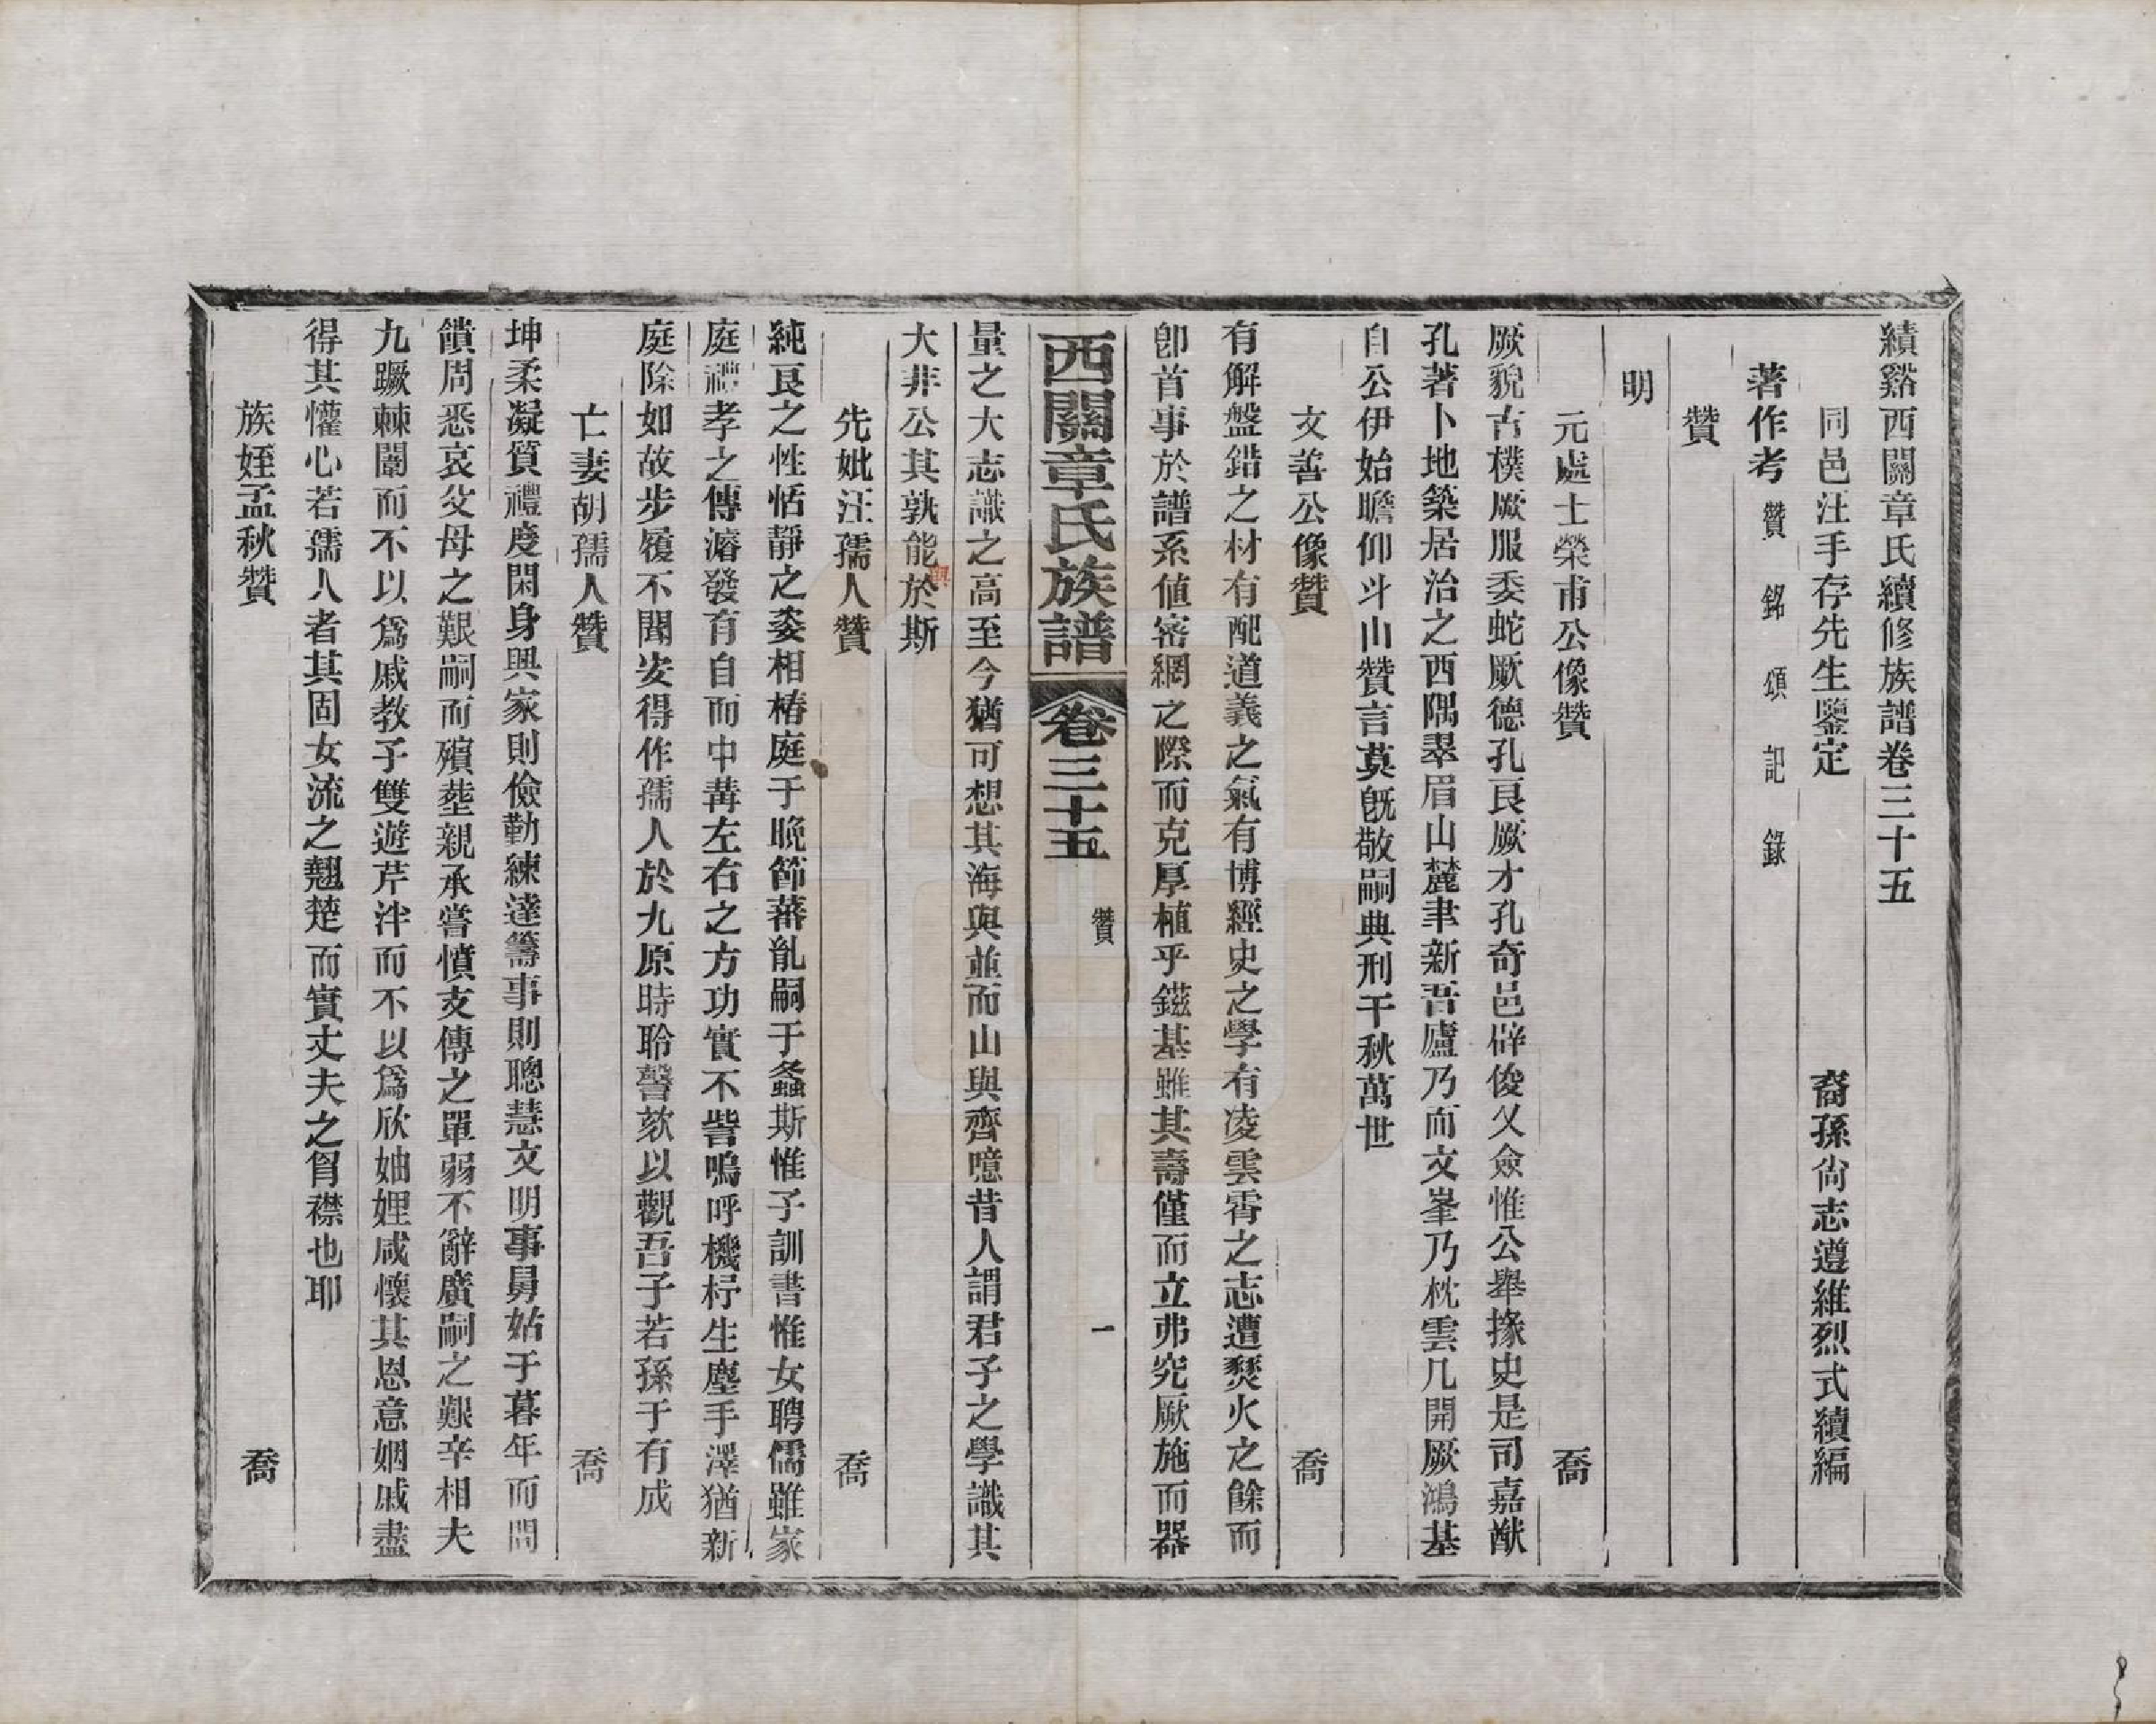 績谿西關章氏續修族譜卷三十五
同邑汪手存先生鑒定　裔孫尚志遵維烈式續編
著作考 贊 銘 頌 記 錄
贊
明
元處士榮甫公像贊　喬
厥貌古樸厥服委蛇厥德孔良厥才孔奇邑辟俊乂僉惟公舉掾史是司嘉猷
孔著卜地築居治之西隅翠眉山麓聿新吾廬乃而文峯乃枕雲几開厥鴻基
自公伊始瞻仰斗山贊言莫旣敬嗣典刑千秋萬世
文善公像贊　喬
有解盤錯之材有配道義之氣有博經史之學有凌雲霄之志遭燹火之餘而
卽首事於譜系値密網之際而克厚植乎鎡基雖其壽僅而立弗究厥施而器
西關章氏族譜 卷三十五 贊 一
量之大志識之高至今猶可想其海與並而山與齊噫昔人謂君子之學識其
大非公其孰能與於斯
先妣汪孺人贊　喬
純良之性恬靜之姿相椿庭于晚節蕃胤嗣于螽斯惟子訓書惟女聘儒雖家
庭禮孝之傳濬發有自而中冓左右之方功實不訾嗚呼機杼生塵手澤猶新
庭除如故步履不聞安得作孺人於九原時聆謦欬以觀吾子若孫于有成
亡妻胡孺人贊　喬
坤柔凝質禮度閑身興家則儉勤練達籌事則聰慧文明事舅姑于暮年而問
饋周悉哀父母之艱嗣而殯塟親承嘗憤支傳之單弱不辭廣嗣之艱辛相夫
九蹶棘闈而不以爲戚教子雙遊芹泮而不以爲欣妯娌咸懷其恩意姻戚盡
得其懽心若孺人者其固女流之翹楚而實丈夫之胷襟也耶
族姪孟秋贊　喬